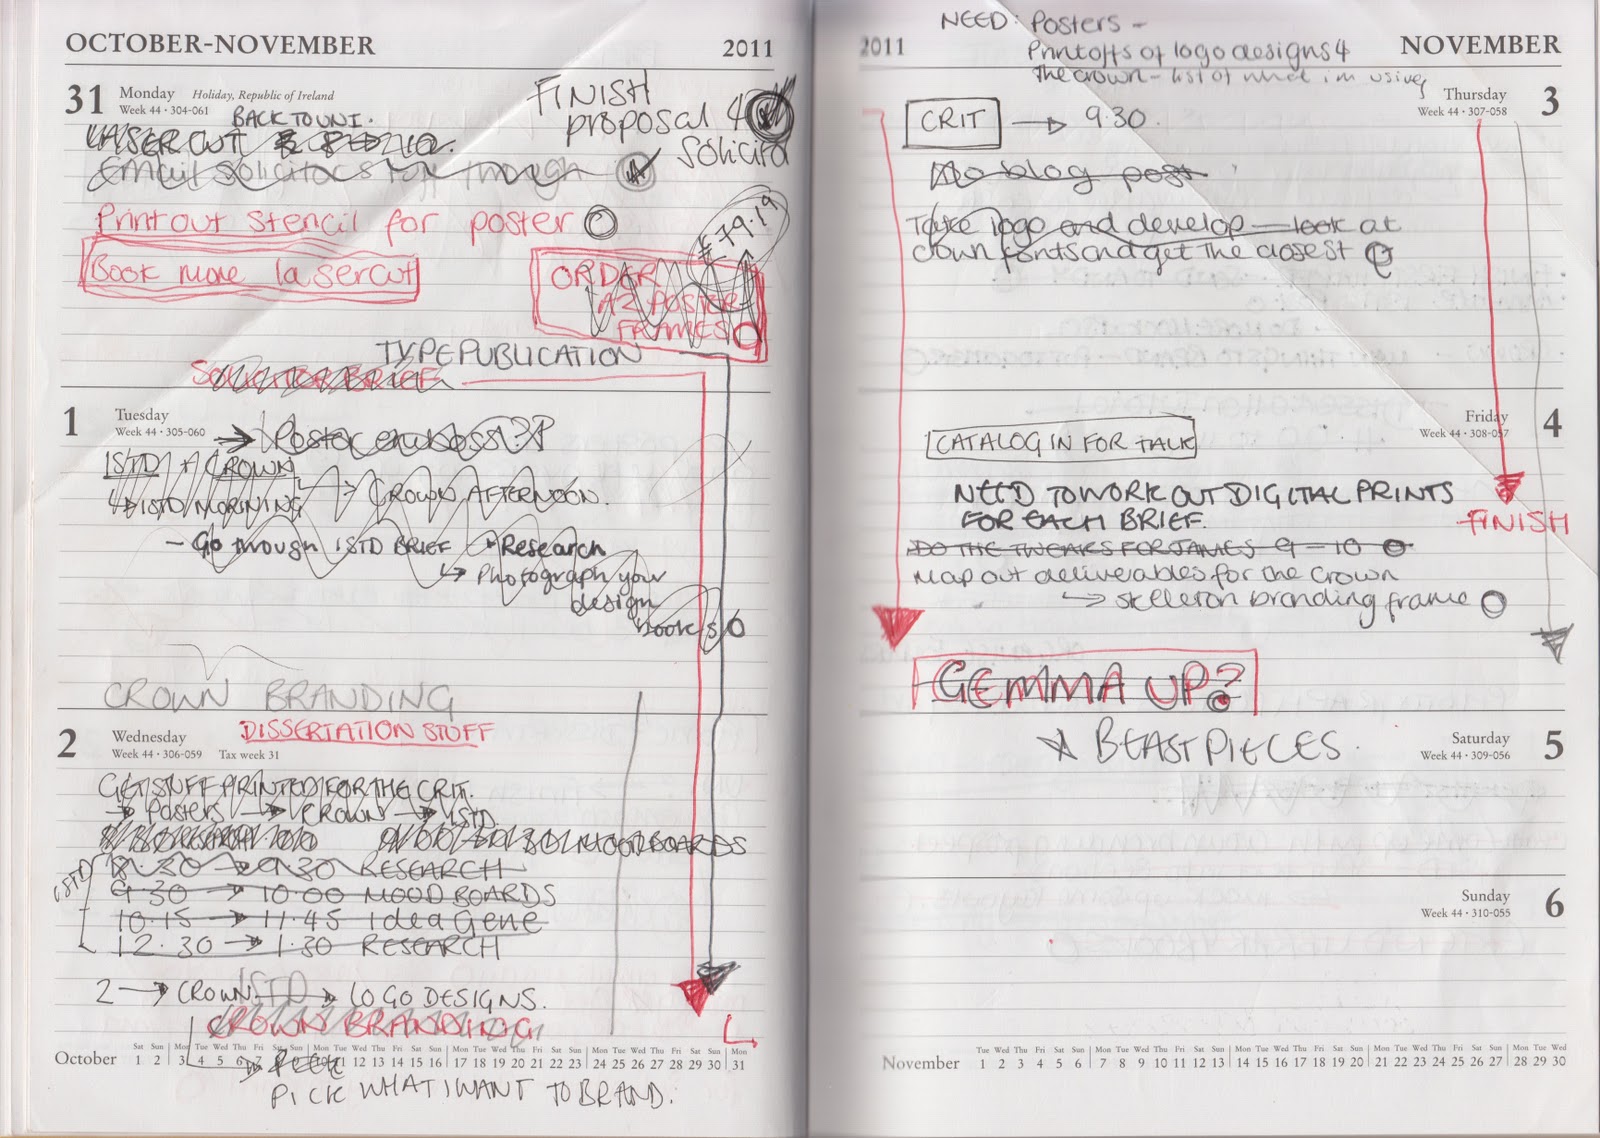 OCTOBER-NOVEMBER 2011
31 Monday Holiday, Republic of Ireland
Week 44 • 304-061
BACK TO UNI.
FINISH
proposal 4
solicita
LASER CUT
EMAIL SOLICITORS through
Print out stencil for poster
£79.19
Book more lasercut
ORDER
A2 POSTER
FRAMES
TYPE PUBLICATION
SOLICITOR BRIEF
1 Tuesday
Week 44 • 305-060
Poster emboss?
ISTD + CROWN
ISTD MORNING → CROWN AFTERNOON.
- Go through ISTD BRIEF → Research
↳ Photograph your
design
books
CROWN BRANDING
DISSERTATION STUFF
2 Wednesday
Week 44 • 306-059 Tax week 31
GET STUFF PRINTED FOR THE CRIT.
→ posters → CROWN → ISTD
MOODBOARDS
ISTD
8.30 → 9.30 RESEARCH
9.30 → 10.00 MOOD BOARDS
10.15 → 11.45 Idea Gene
12.30 → 1.30 RESEARCH
2 → CROWN ISTD → LOGO DESIGNS.
CROWN BRANDING
October
Sat Sun Mon Tue Wed Thu Fri Sat Sun Mon Tue Wed Thu Fri Sat Sun Mon Tue Wed Thu Fri Sat Sun Mon Tue Wed Thu Fri Sat Sun Mon
1 2 3 4 5 6 7 12 13 14 15 16 17 18 19 20 21 22 23 24 25 26 27 28 29 30 31
PICK WHAT I WANT TO BRAND.
NEED: Posters -
Printoffs of logo designs 4
the crown - list of what i'm using
2011 NOVEMBER
Thursday 3
Week 44 • 307-058
CRIT → 9.30.
No blog post
Take logo and develop - look at
crown fonts and get the closest
Friday 4
Week 44 • 308-057
CATALOG IN FOR TALK
NEED TO WORK OUT DIGITAL PRINTS
FOR EACH BRIEF.
FINISH
DO THE TWEAKS FOR JAMES 9 - 10
Map out deliverables for the Crown
↳ skelleton branding frame
GEMMA UP?
BEAST PIECES.
Saturday 5
Week 44 • 309-056
Sunday 6
Week 44 • 310-055
November
Tue Wed Thu Fri Sat Sun Mon Tue Wed Thu Fri Sat Sun Mon Tue Wed Thu Fri Sat Sun Mon Tue Wed Thu Fri Sat Sun Mon Tue Wed
1 2 3 4 5 6 7 8 9 10 11 12 13 14 15 16 17 18 19 20 21 22 23 24 25 26 27 28 29 30